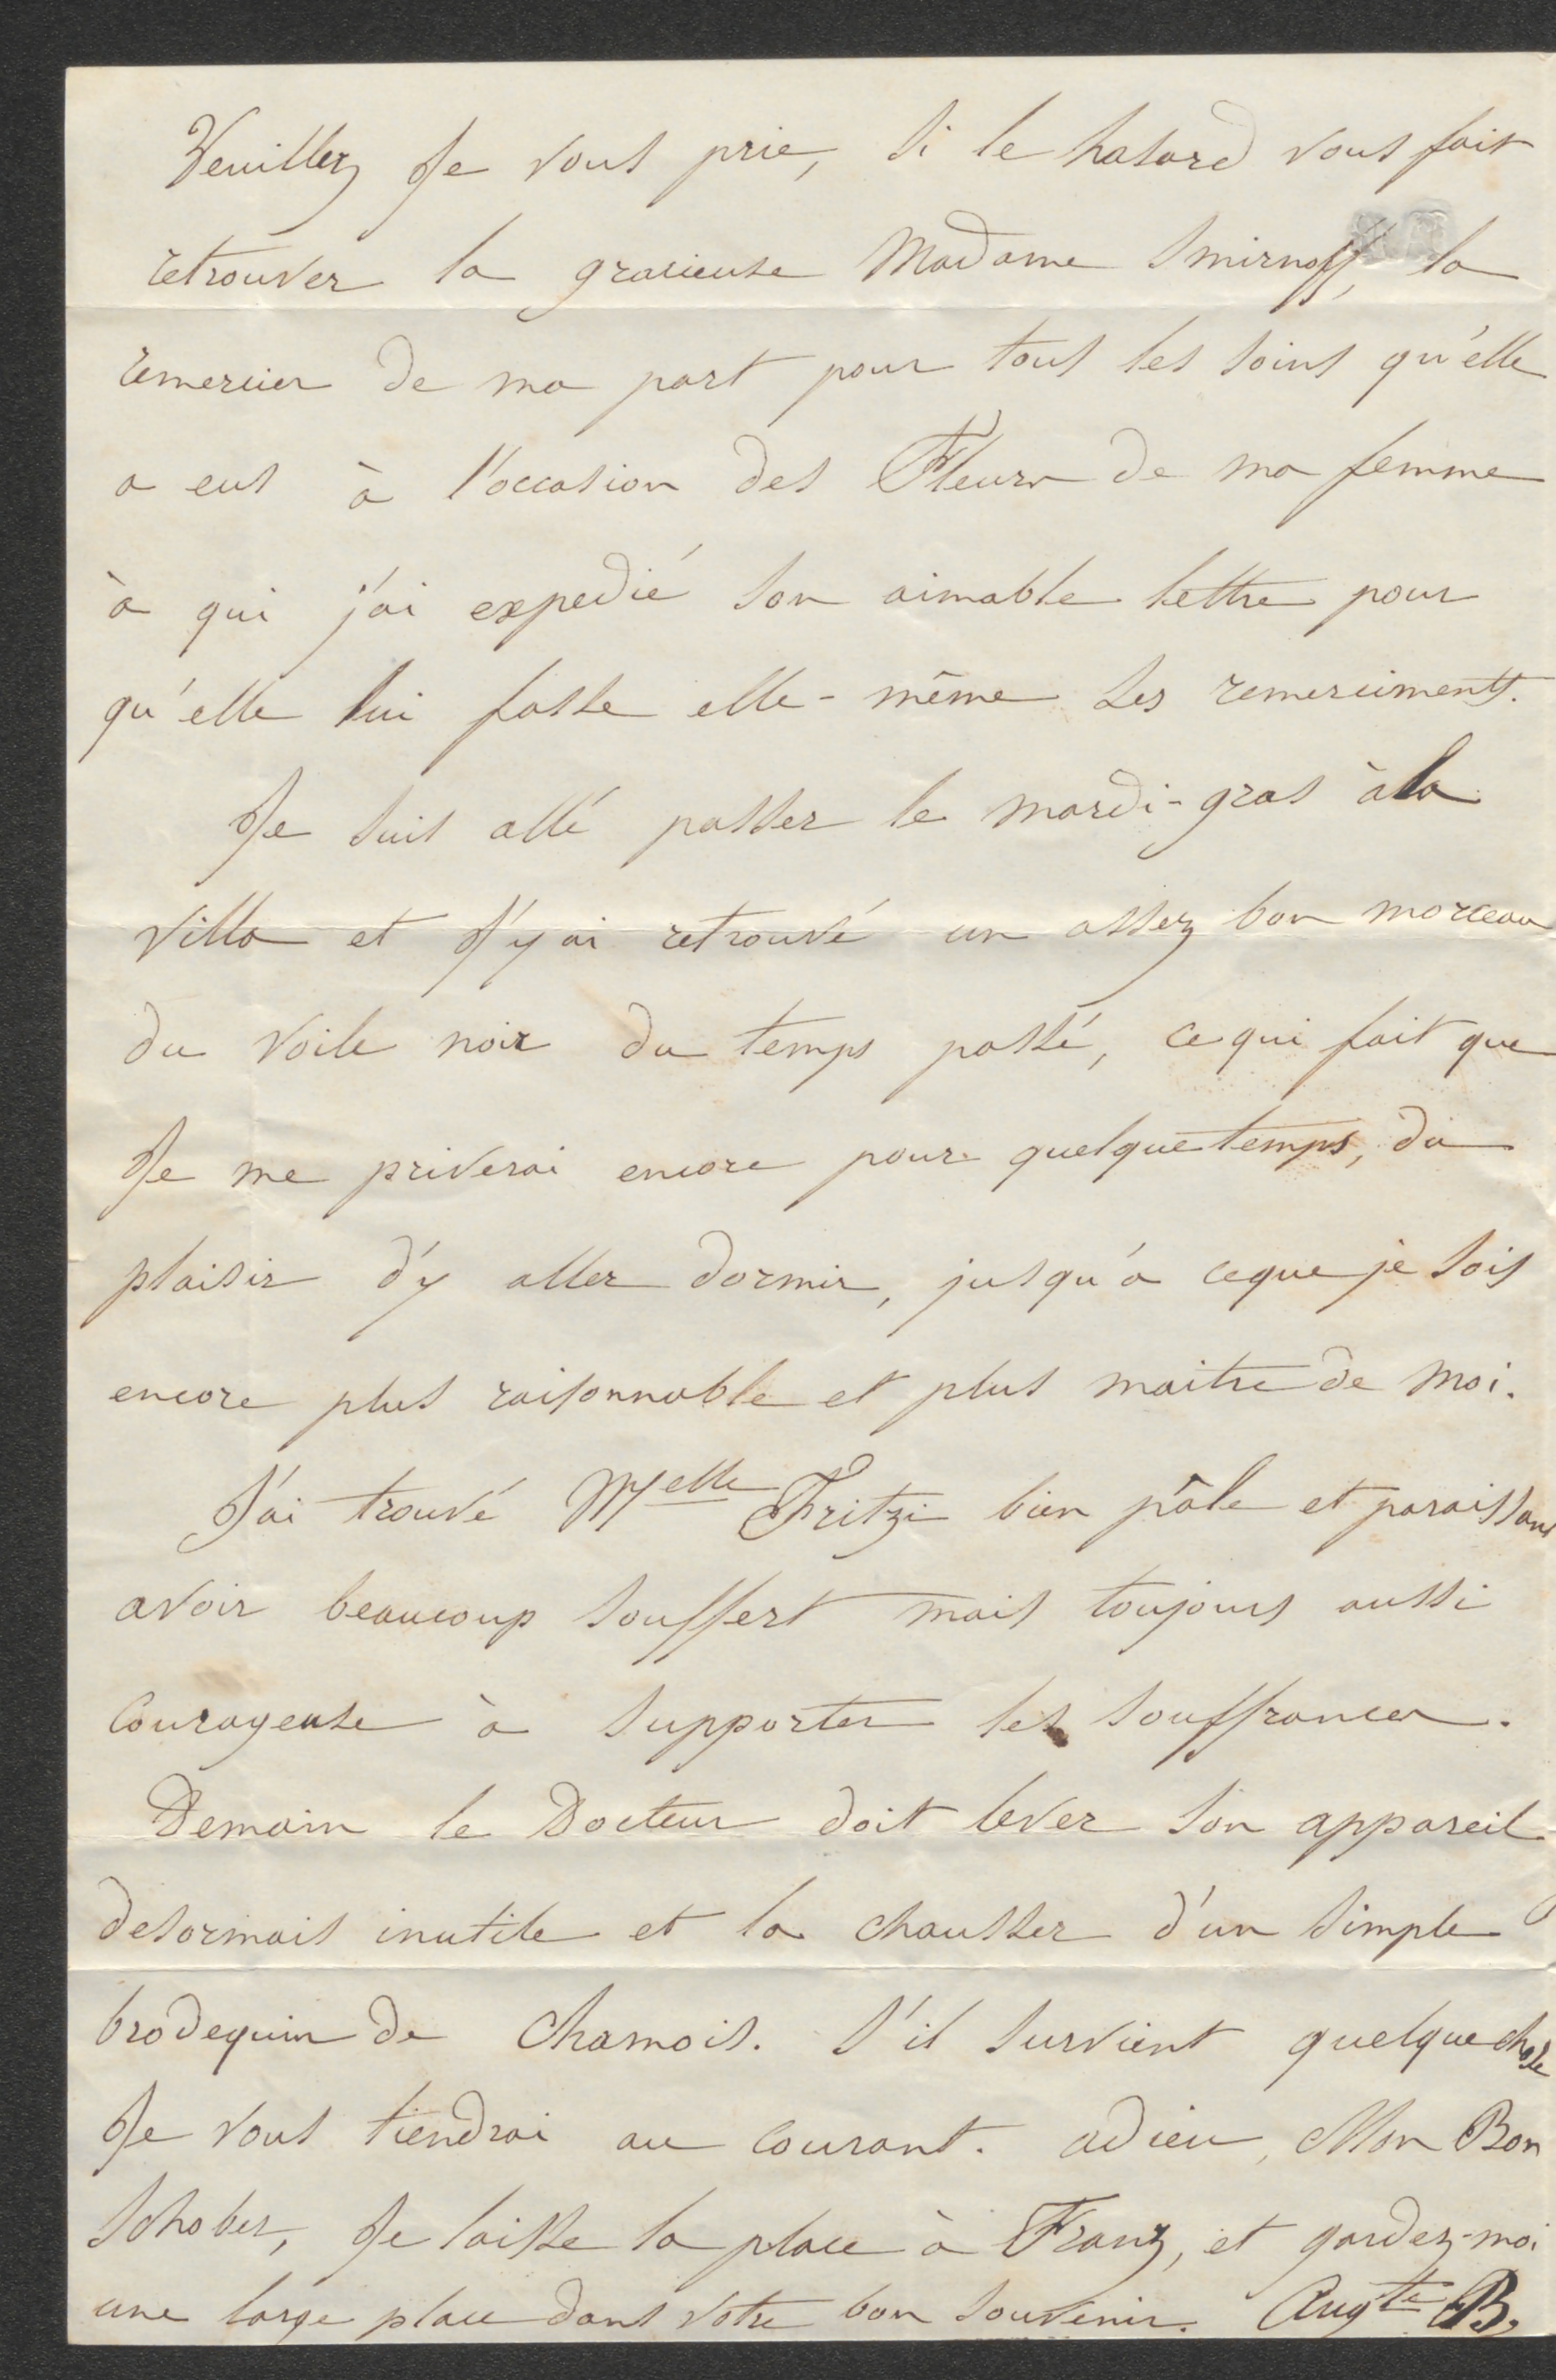 Veuillez Je vous prie, si le hasard vous fait
retrouver la gracieuse Madame Smirnoff, la
remercier de ma part pour tous les soins qu'elle
a eus à l'occasion des Fleurs de ma femme
à qui j'ai expedié son aimable lettre pour
qu'elle lui fasse elle-même ses remerciments.
Je suis allé passer le mardi-gras à la
villa et J'y ai retrouvé un assez bon morceau
du voile noir du temps passé, ce qui fait que
Je me priverai encore pour quelque temps, du
plaisir d'y aller dormir, jusqu'à ceque je sois
encore plus raisonnable et plus maitre de moi.
J'ai trouvé Melle Fritzi bien pâle et paraissant
avoir beaucoup souffert mais toujours aussi
Courageuse à supporter les souffrances.
Demain le Docteur doit lever son appareil
desormais inutile et la chausser d'un simple
brodequin de Chamois. S'il survient quelque chose
Je vous tiendrai au courant. adieu, Mon Bon
Schober, Je laisse la place à Franz, et gardez-moi
une large place dans votre bon souvenir. Augte B.